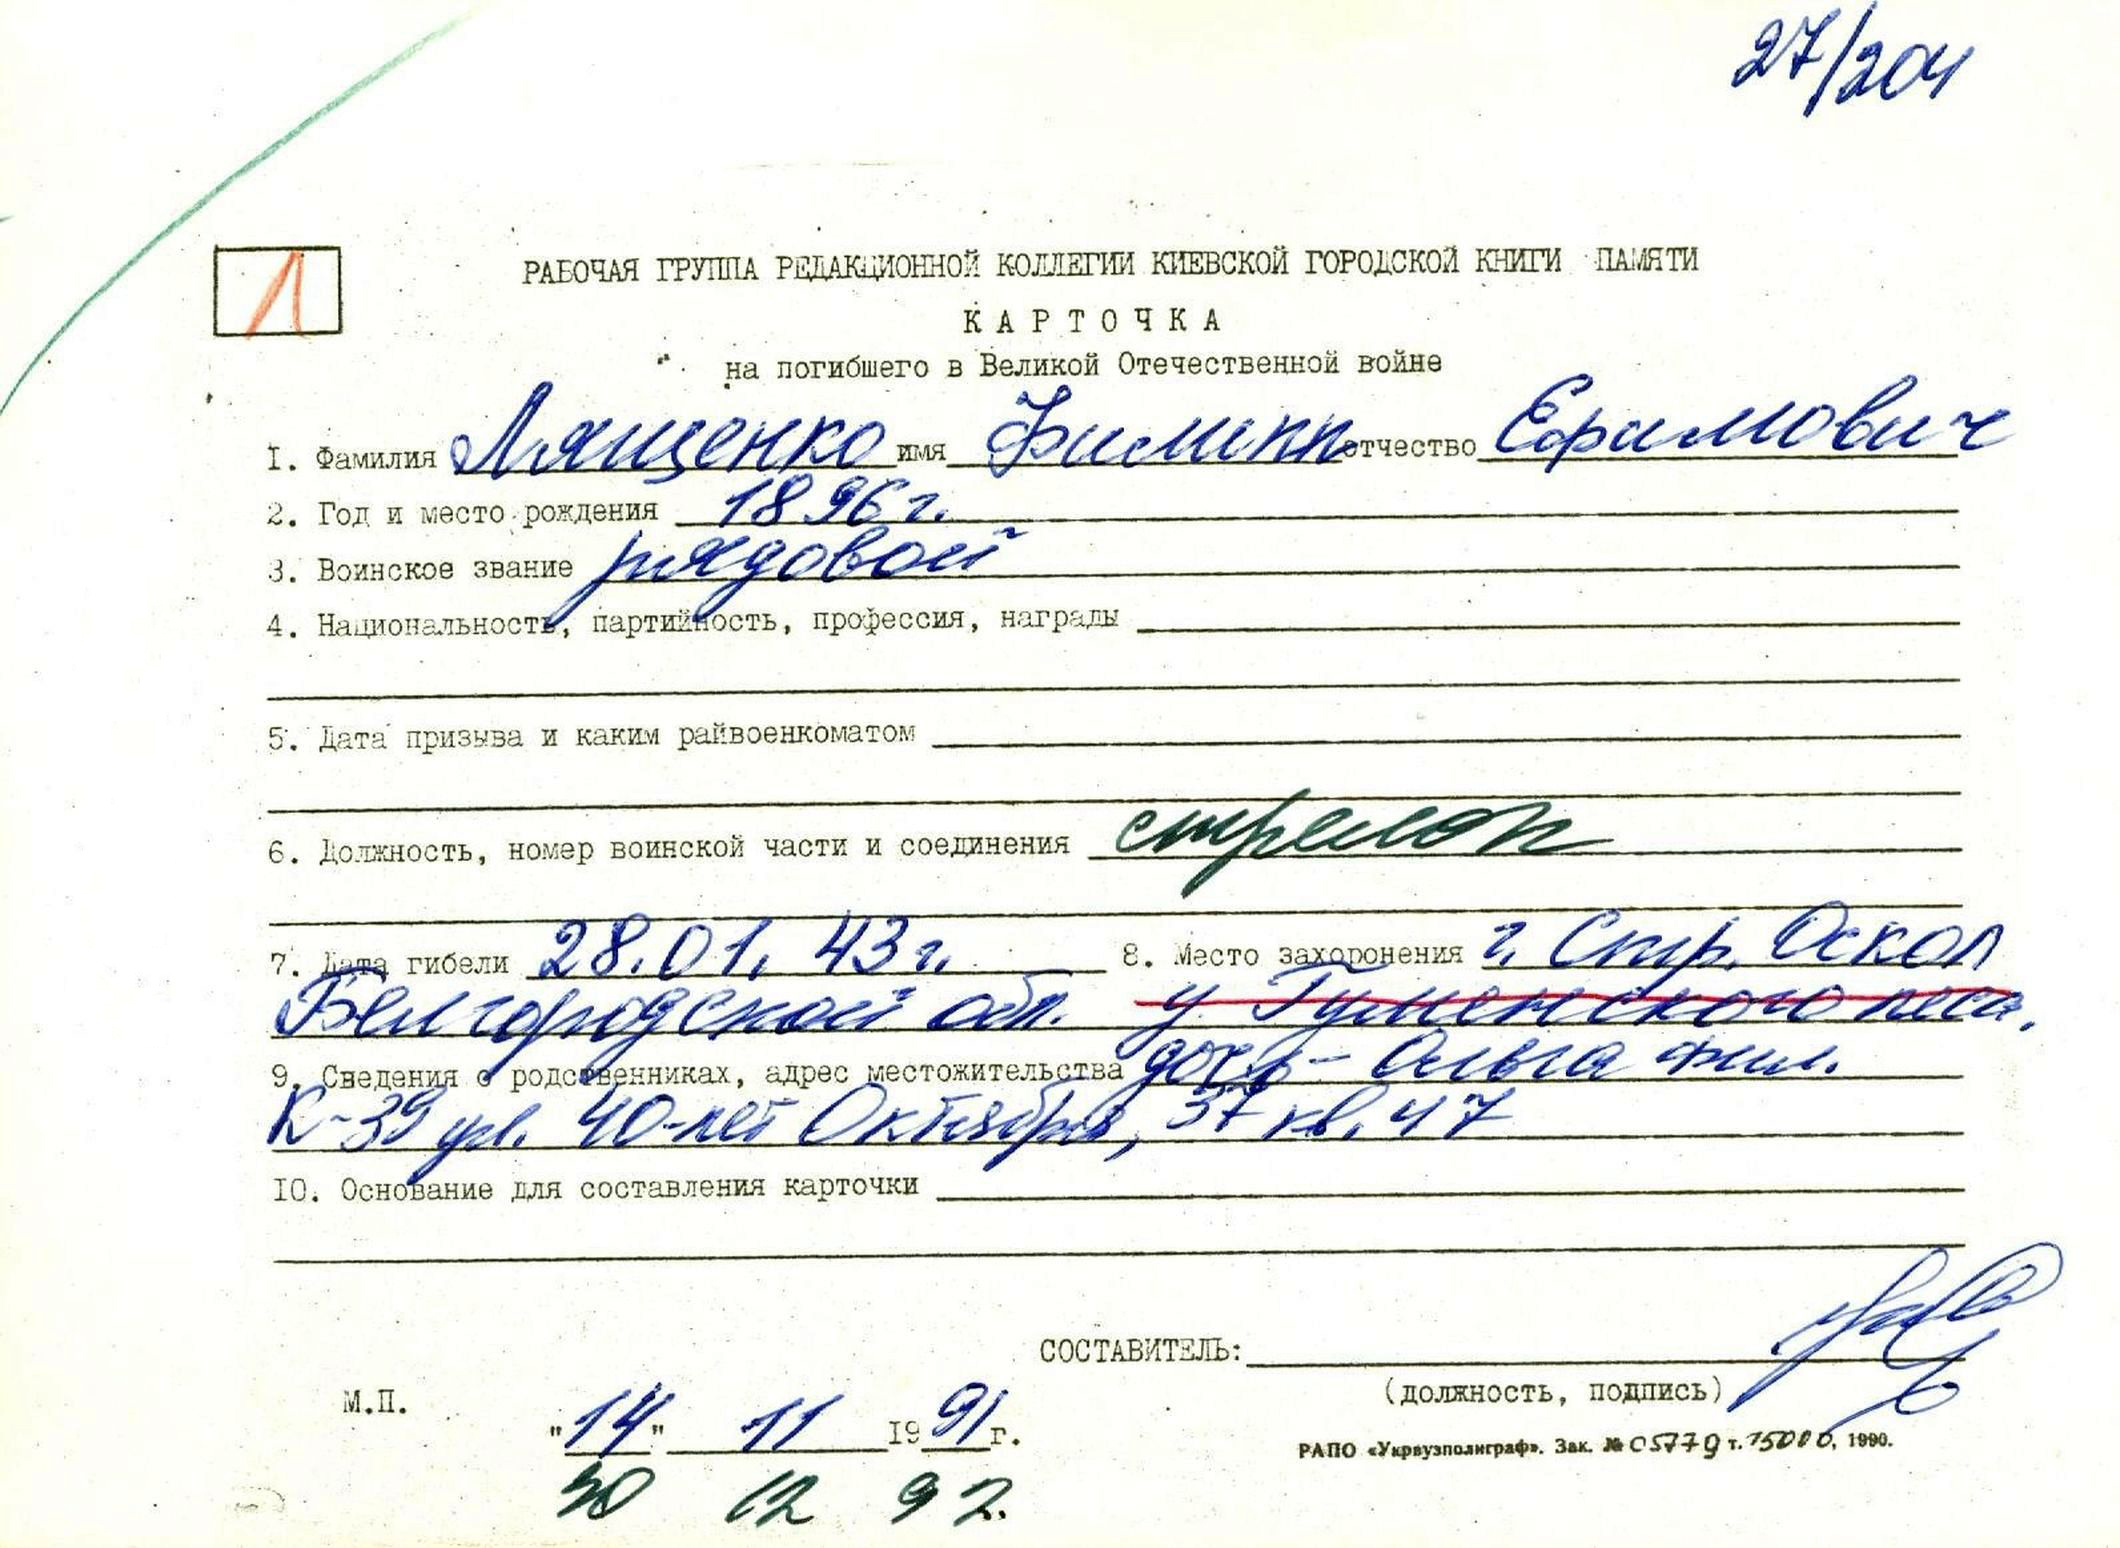 27/204
Л
РАБОЧАЯ ГРУППА РЕДАКЦИОННОЙ КОЛЛЕГИИ КИЕВСКОЙ ГОРОДСКОЙ КНИГИ ПАМЯТИ
КАРТОЧКА
на погибшего в Великой Отечественной войне
I. Фамилия Лященко имя Филипп отчество Ефимович
2. Год и место рождения 1896 г.
3. Воинское звание рядовой
4. Национальность, партийность, профессия, награды
5. Дата призыва и каким райвоенкоматом
6. Должность, номер воинской части и соединения стрелок
7. Дата гибели 28.01.43 г. 8. Место захоронения г. Стар. Оскол
Белгородской обл. у Гуменского леса.
9. Сведения о родственниках, адрес местожительства дочь - Ольга Фил.
К-39 ул. 40-лет Октября, 37 кв. 47
IO. Основание для составления карточки
СОСТАВИТЕЛЬ:
(должность, подпись)
М.П.
"14" 11 1991г.
РАПО «Укрвузполиграф». Зак. № 05779 т. 15000, 1990.
30 12 92.